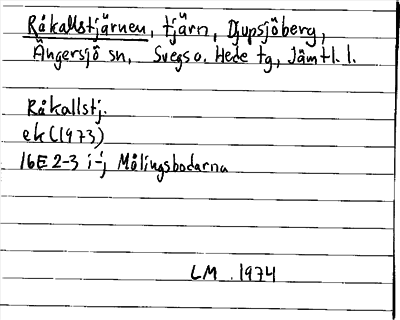 Råkallstjärnen, tjärn, Djupsjöberg,
Ängersjö sn, Svegs o. Hede tg, Jämtl. l.
Råkallstj.
ek (1973)
16E 2-3 i-j Målingsbodarna
LM. 1974